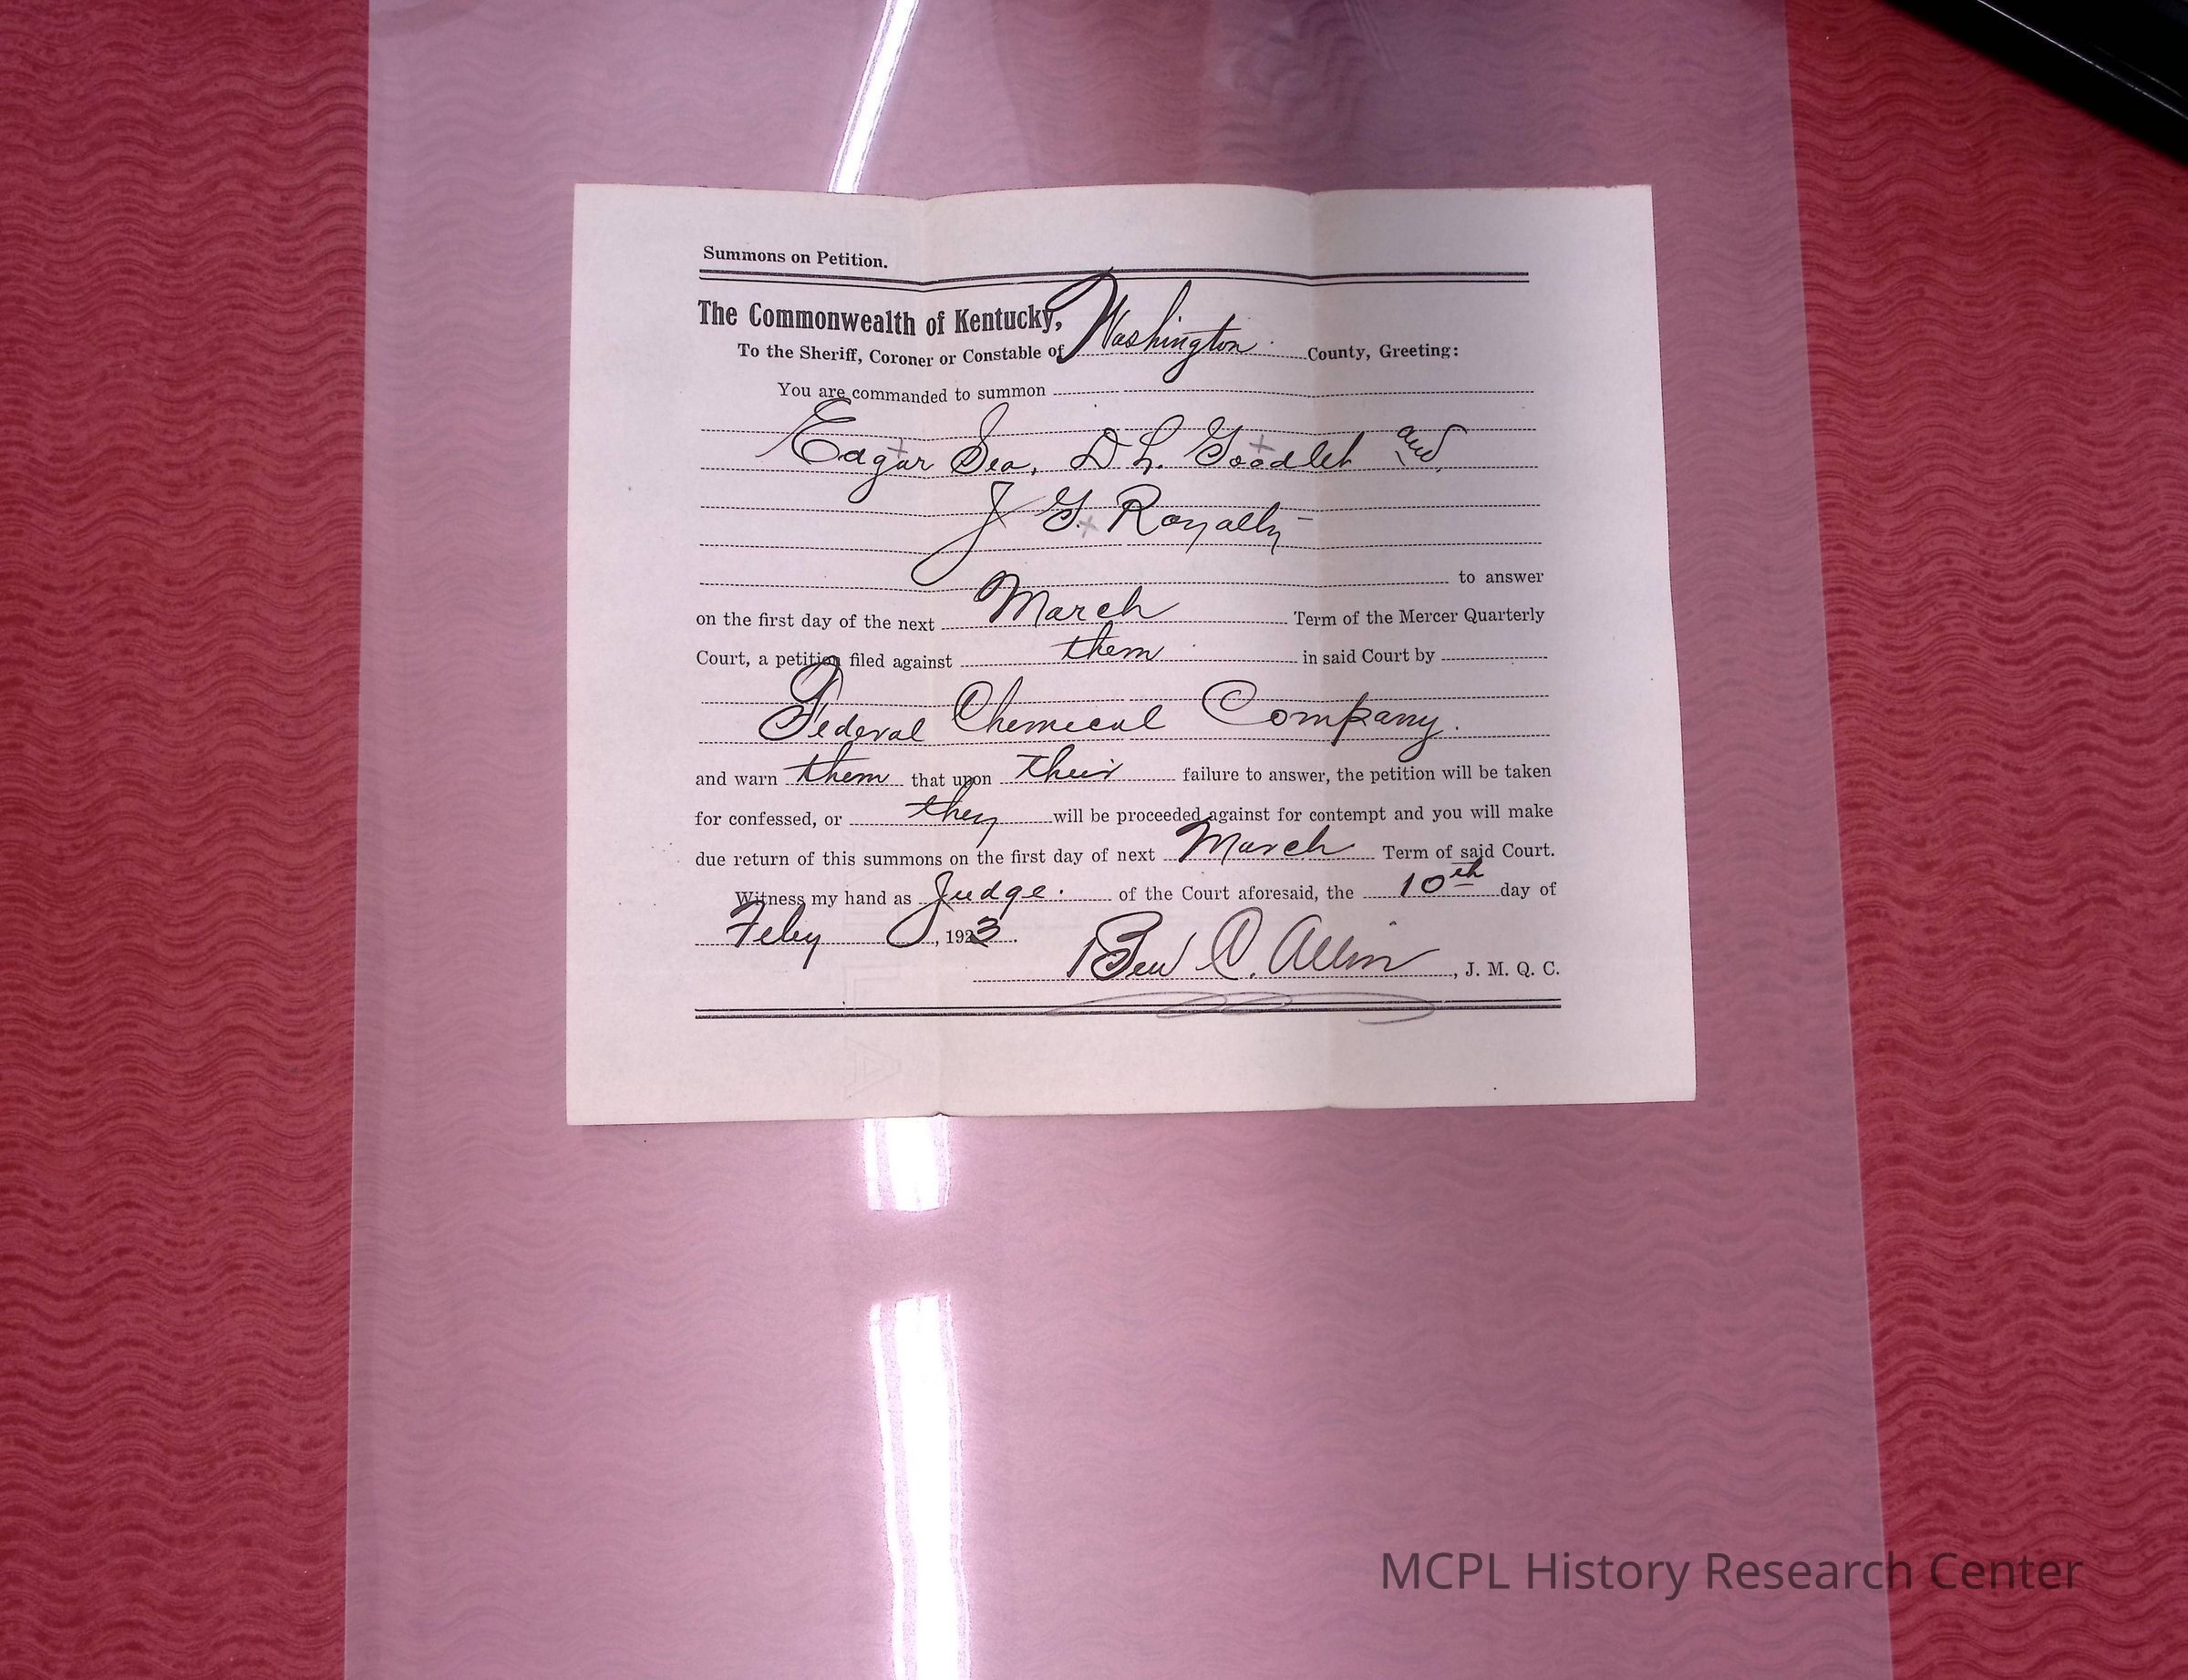 Summons on Petition.
The Commonwealth of Kentucky,
To the Sheriff, Coroner or Constable of Washington County, Greeting:
You are commanded to summon
Edgar Sea, D L. Goodlet and
J G. Royalty
to answer
on the first day of the next March Term of the Mercer Quarterly
Court, a petition filed against them in said Court by
Federal Chemical Company.
and warn them that upon their failure to answer, the petition will be taken
for confessed, or they will be proceeded against for contempt and you will make
due return of this summons on the first day of next March Term of said Court.
Witness my hand as Judge. of the Court aforesaid, the 10th day of
Feby, 1923.
Ben C. Allin, J. M. Q. C.
MCPL History Research Center